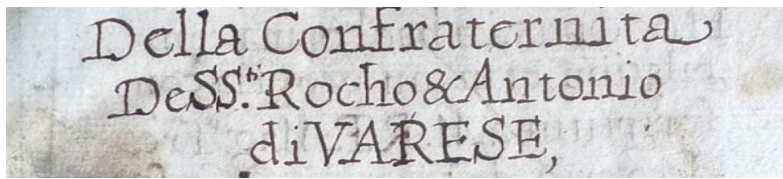 Della Confraternita
De SS.ti Rocho & Antonio
di VARESE,